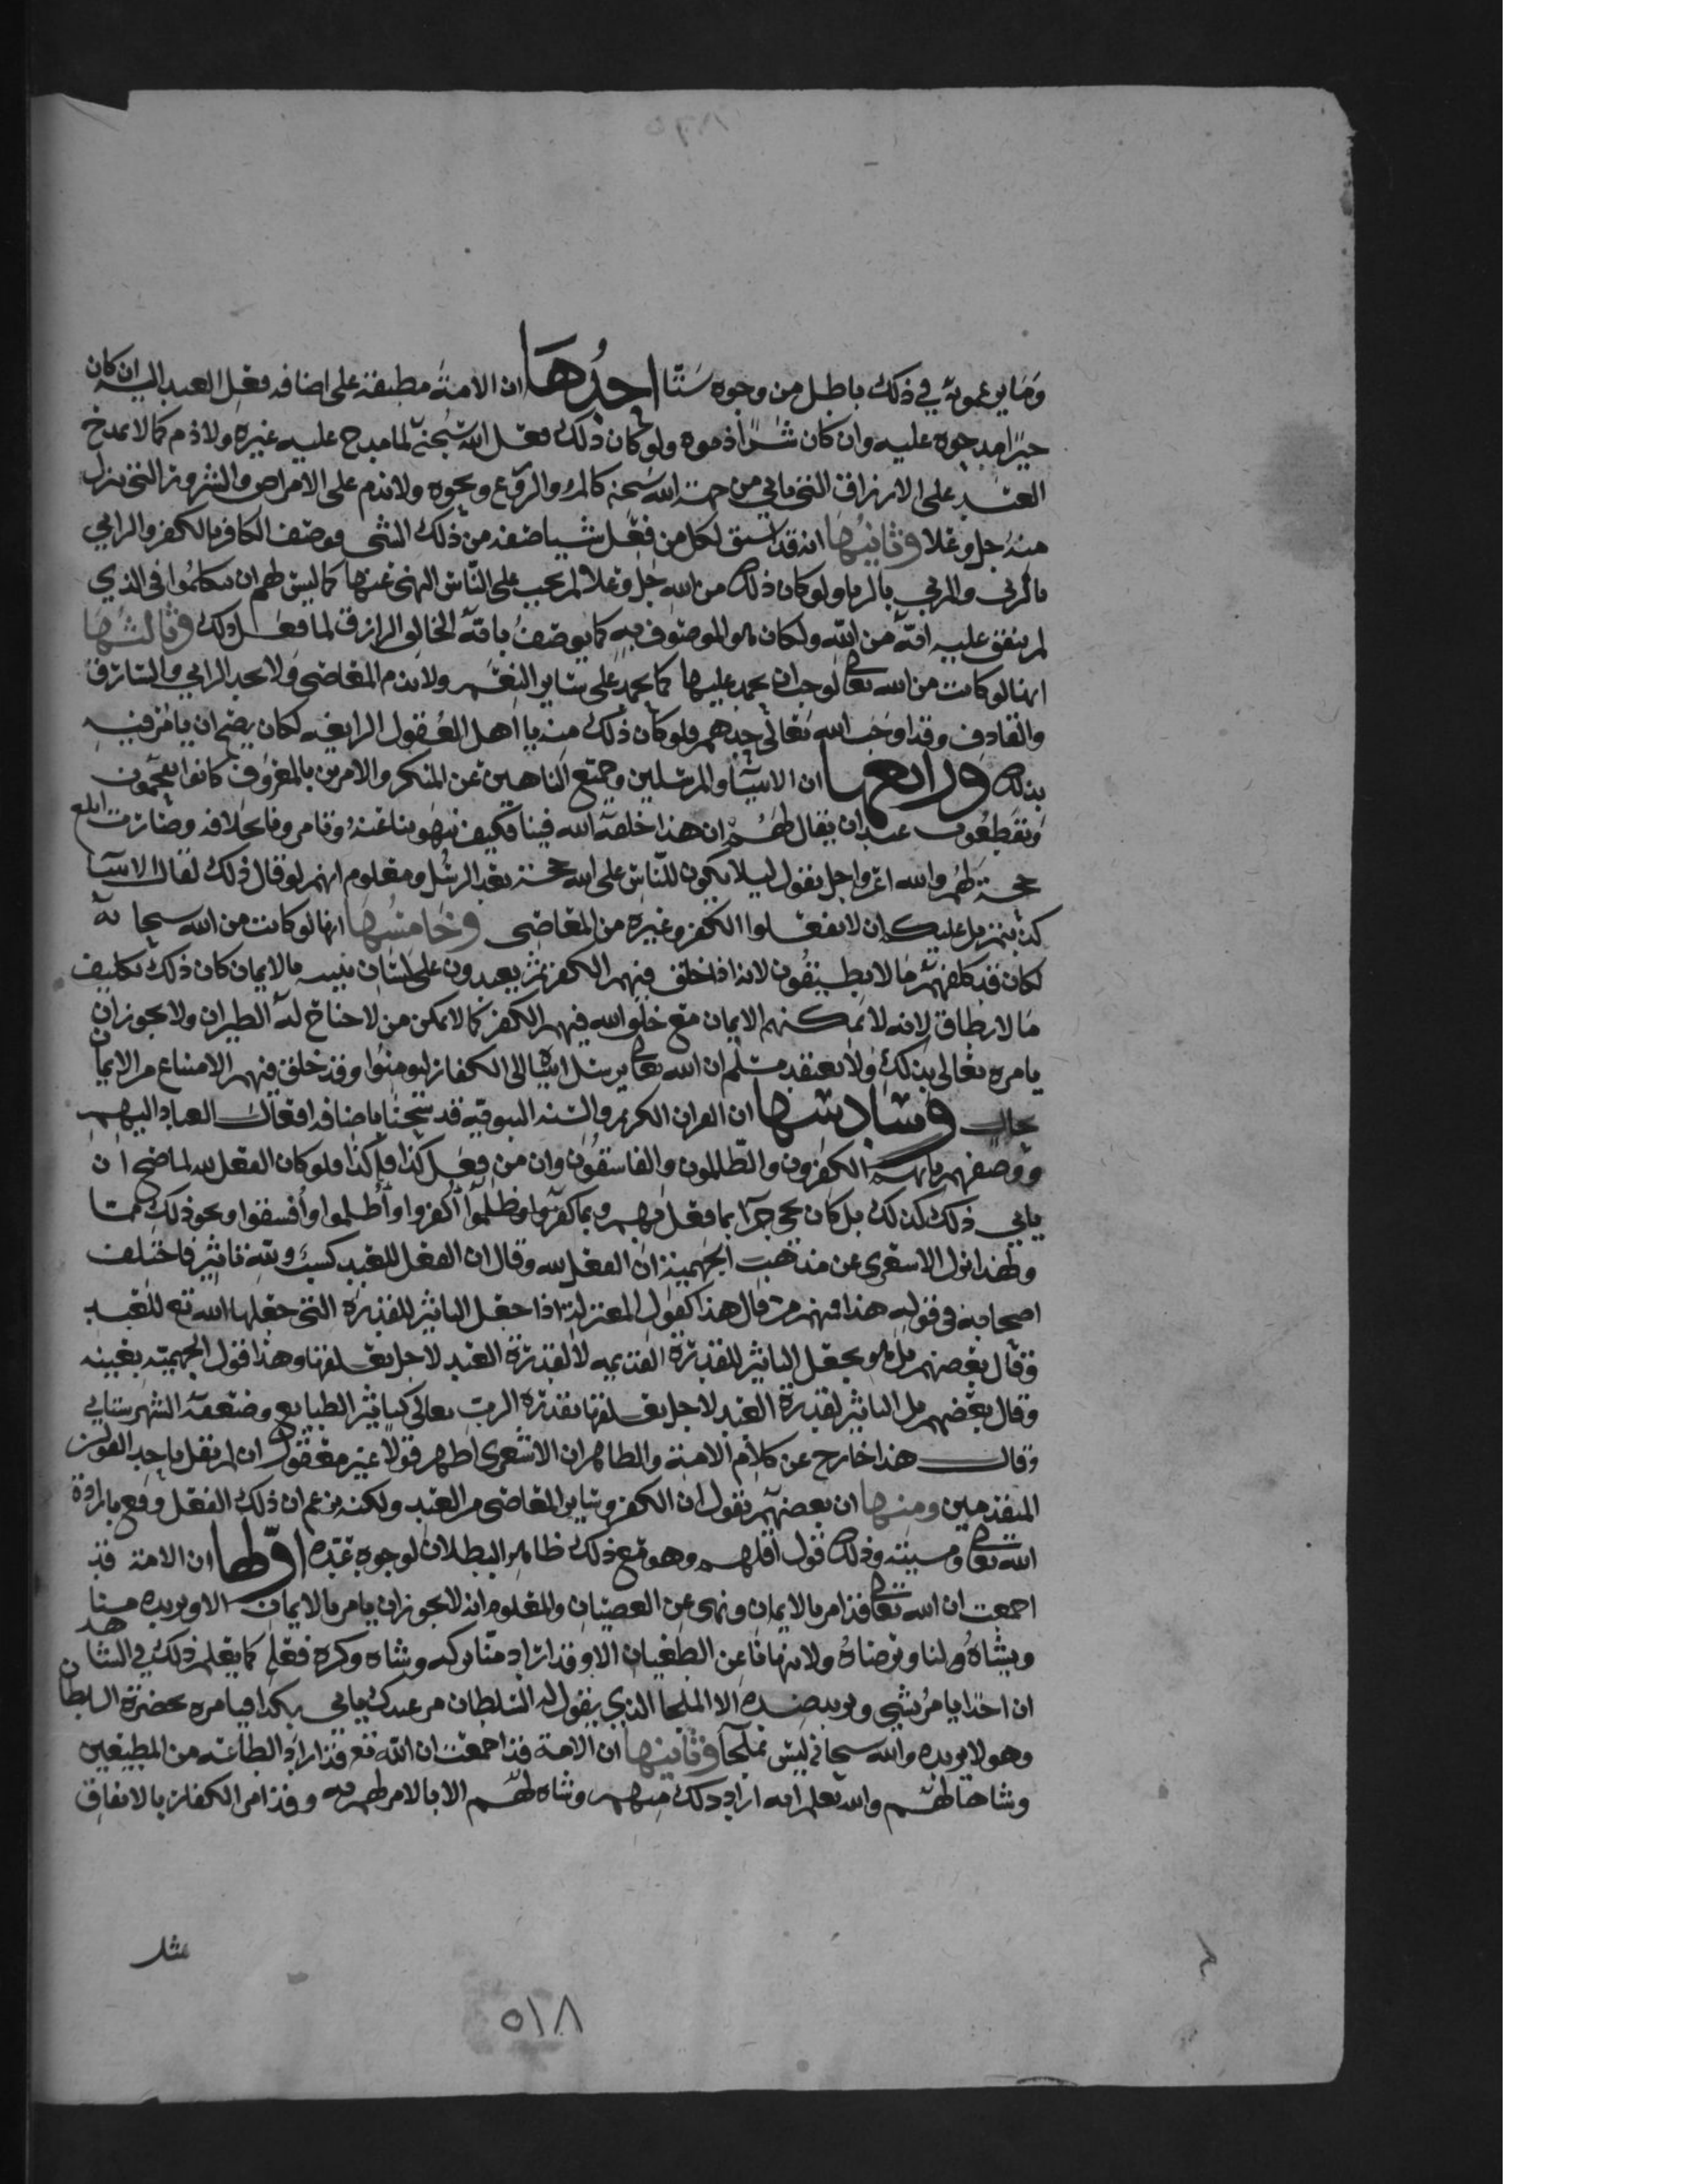 وما يوعمونه في ذلك باطل من وجوه ستا احدها ان الامة مطبقة على اضافه فعل العبد اليه ان كان
خيرا مدحوه عليه وان كان شرا ذموه ولو كان ذلك فعل الله سبحنه لما مدح عليه غيره ولا ذم كما لا يمدح
العبد على الارزاق التي ياتي من جهة الله سبحنه كالمر والروع ونحوه ولا يذم على الامراض والشرور التي تنزل
منه جل وعلا وثانيها انه قد اشتق لكل من فعل شيا صفه من ذلك الشي فوصف الكافر بالكفر والرابي
بالربى والمربي بالربا ولو كان ذلك من الله جل وعلا لم يجب على الناس النهى عنها كما ليس لهم ان يتكلموا في الذي
لم يتفق عليه انه من الله ولكان هو الموصوف به كما يوصف بانه الخالق الرازق لما فعل ذلك وثالثها
انها لو كانت من الله تعالى لوجب ان يحمد عليها كما يحمد على سائر النعم ولا يذم المعاصي ولا يحد الزاني والسارق
والقاذف وقد اوجب الله تعالى حدهم ولو كان ذلك منه يا اهل العقول الرايغه لكان يصح ان يامر فيه
بذلك ورابعها ان الانبيا والمرسلين وجميع الناهين عن المنكر والامرين بالمعروف كانوا يفحمون
وينقطعون عند ان يقال لهم ان هذا خلقه الله فينا فكيف تنهونا عنه وتامرونا بخلافه وصارت ابلغ
حجة لهم والله اعز واجل يقول ليلا يكون للناس على الله حجة بعد الرسل ومعلوم انهم لو قال ذلك لقال الانبيا
كذبتم بل عليكم ان لا تفعلوا الكفر وغيره من المعاصي وخامسها انها لو كانت من الله سبحانه
لكان قد كلفهم ما لا يطيقون لانه اذا خلق فيهم الكفر ثم يعبدون على لسان نبيه بالايمان كان ذلك تكليف
ما لا يطاق لانه لا يمكنهم الايمان مع خلق الله فيهم الكفر كما لا يمكن من لا جناح له الطيران ولا يجوز ان
يامره تعالى بذلك ولا يعتقد مسلم ان الله تعالى يرسل انبياه الى الكفار ليومنوا وقد خلق فيهم الامتناع من الايمان
بحال وسادسها ان القران الكريم والسنه النبويه قد شحنا باضافه افعال العباد اليهم
ووصفهم بانهم الكفرون والظالمون والفاسقون وان من فعل كذا فله كذا ولو كان الفعل لله لما صح ان
ياتي ذلك كذلك بل كان يجي جزا بما فعل فيهم وبما كفروا وظلموا اكفروا او اظلموا وافسقوا ونحو ذلك مما
ولهذا نزل الاشعري عن مذهب الجهمية ان الفعل لله وقال ان الفعل للعبد كسبا ولله تاثير فاختلف
اصحابه في قوله هذا فمنهم من قال هذا كقول المعتزله اذا جعل التاثير للقدرة التي جعلها الله تع للعبد
وقال بعضهم بل هو يجعل التاثير للقدرة القديمه لا لقدرة العبد لاجل تعلقها وهذا قول الجهمية بعينه
وقال بعضهم بل التاثير لقدرة العبد لاجل تعلقها بقدرة الرب تعالى كتاثير الطبايع وضعفه الشهرستاني
وقال هذا خارج عن كلام الامة والظاهر ان الاشعري اظهر قولا غير معقول ان لم نقل باحد القولين
المتقدمين ومنها ان بعضهم يقول ان الكفر وساير المعاصي من العبد ولكنه يزعم ان ذلك الفعل وقع بارادة
الله تعالى ومشيته وذلك قول اقلهم وهو مع ذلك ظاهر البطلان لوجوه عده اولها ان الامة قد
اجمعت ان الله تعالى قد امر بالايمان ونهى عن العصيان والمعلوم انه لا يجوز ان يامر بالايمان الا ويريده منا
ويشاه لنا ويرضاه ولا ينهانا عن الطغيان الا وقد اراد منا تركه وشاه وكره فعله كما يعلم ذلك في الشاهد
ان احدا يامر بشي ويريد ضده الا الملجا الذي يقول له السلطان مر عبدك ياتي بكذا فيامره بحضرة السلطان
وهو لا يريده والله سبحانه ليس بملجا وثانيها ان الامة قد اجمعت ان الله تع قد اراد الطاعة من المطيعين
وشاها لهم والله يعلم انه اراد ذلك منهم وشاه لهم الا بالامر لهم به وقد امر الكفار بالاتفاق
مثل
٥١٨